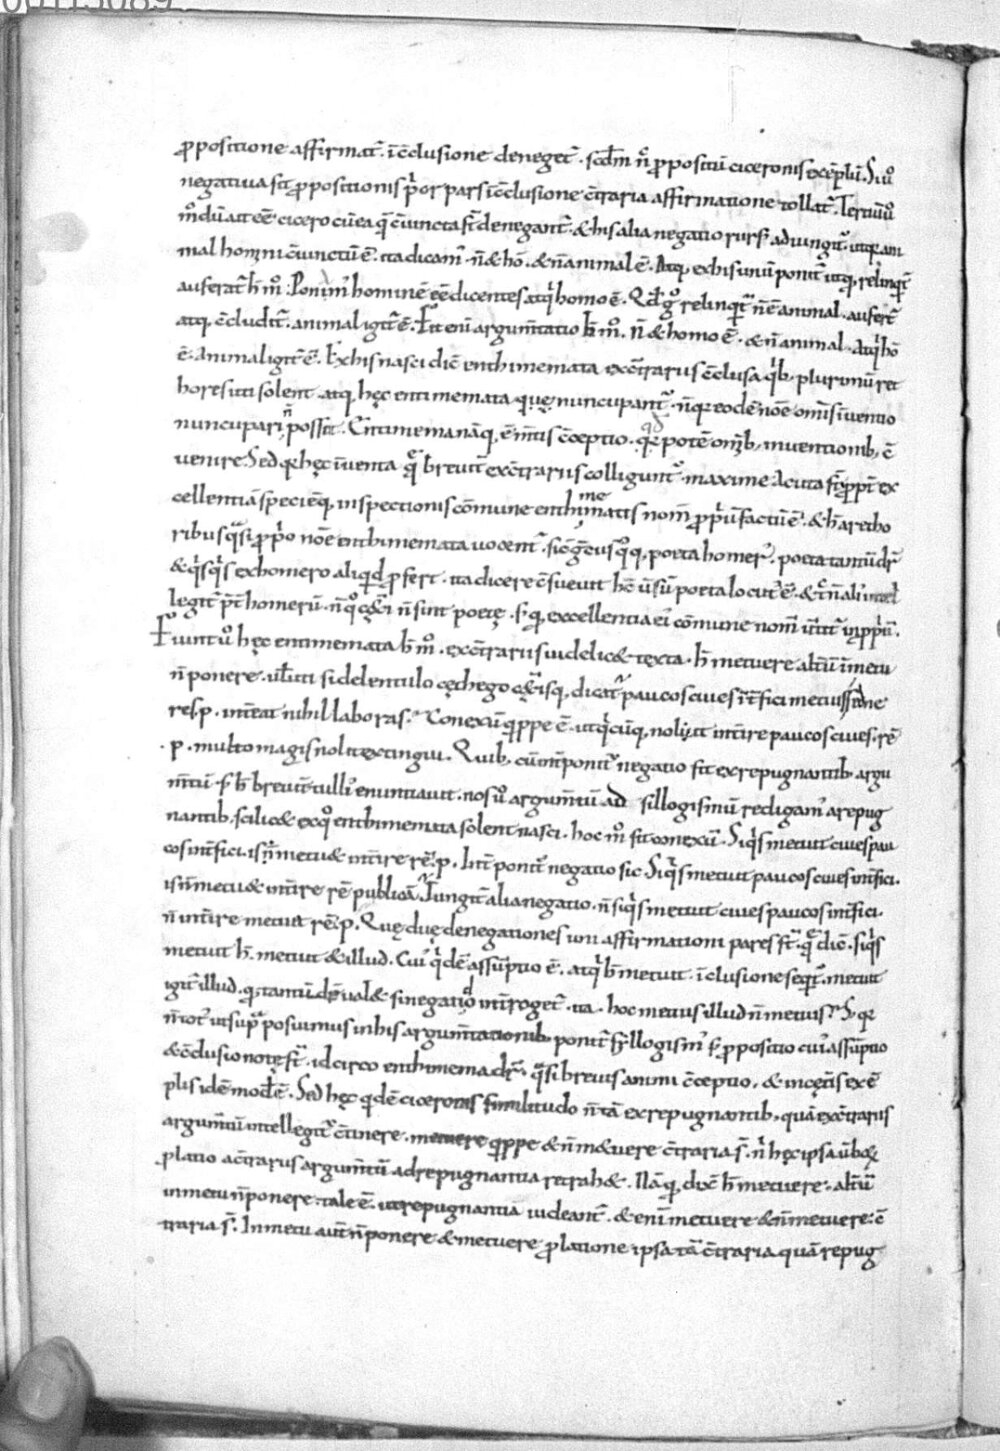 00113089
ꝓpositione affirmat̃. ĩc̃clusione deneget̃. scd̃m ñ ꝓpositũ ciceronis exẽplũ. Siũo
negatiua sit ꝓpositionis p̃or pars ĩc̃clusione c̃traria affirmatione tollat̃. Tertiũũo
m̊dũ ait eẽ cicero cũ ea q̃ c̃iuncta st̃ denegant̃. & his alia negatio rurs̃ adiungit̃. utq̃ ani
mal homini c̃iunctũ ẽ. ita dicam̃. ñ & hõ. & ñ animal ẽ. Atq, ex his unũ ponit̃ utq, relinq̃t̃
auferat̃ h̃ m̊. Ponim̃ hominẽ eẽ dicentes atq̃ homo ẽ. Qd̃ g̊ relinq̃t̃ ñ ẽ animal. aufert̃
atq, c̃cludit̃. animal igit̃ ẽ. Fit eni argum̃tatio h̃ m̊. ñ & homo ẽ. & ñ animal. Atq̃ hõ
ẽ. Animal igit̃ ẽ. Ex his nasci dic̃ enthimemata ex c̃trariis c̃clusa q̃b, plurimũ ret
hores uti solent. atq, hęc entimemata quę nuncupant̃. ñ q̃ eodẽ noẽ om̃is ĩuentio
nuncupari ñ possit. Entimema nãq, ẽ m̃tis c̃ceptio. qd̃ potẽ om̃ib, inuentionib, c̃
uenire. Sed q̃ hęc ĩuenta q̃ breuit̃ ex c̃trariis colligunt̃. maxime acuta st̃ ꝓpt̃ ex
cellentiã speciẽq, inspectionis cõmune enthimematis nom̃ ꝓp̃ũ factũ ẽ. & h̃ a retho
ribus q̃si ꝓp̃o noẽ enthimemata uocent̃. sic g̃cus q̊q, poeta homer̃. poeta tantũ dr̃
& q̃sq̃s ex homero aliqid ꝓfert. ita dicere c̃sueuit hẽ ũsũ poeta locut̃ ẽ. & t̃ñ ali intel
legit̃ p̃t̃ homerũ. ñ q̊ cęt̃i ñ sint poetę. s̃ q, excellentia ei cõmune nom̃ uertit̃ in ꝓp̃ũ.
Fiunt ũo hęc entimemata h̃ m̊. ex c̃trariis uidelic& texta. h̃ metuere alt̃ũ ĩ metu
ñ ponere. uł uti si de lentulo cęthego cęt̃isq, dicat̃ paucos ciues ĩt̃fici metuis
resp. inteat nihil laboras. Conexũ q̃ppe ẽ. utq̃cũq, nolit int̃ire paucos ciues. rẽ
.p. multo magis nolit extingui. Quib, cũ int̃ponit̃ negatio fit ex repugnantib. argu
m̃tũ. s̃ h̃ breuit̃ tulli enuntiauit. nos ũo argum̃tũ ad sillogismũ redigam̃ a repug
nantib. scilic& ex q̊ enthimemata solent nasci. hoc m̊ fit conexũ. Si q̃s metuit ciues pau
cos int̃fici. is ñ metu& int̃ire rẽ.p. Int̃ponit̃ negatio sic Si q̃s metuit paucos ciues int̃fici.
is ñ metu& int̃ire rẽ publicã. Iungit̃ alia negatio. ñ siq̃s metuit ciues paucos int̃fici.
ñ int̃ire metuet rẽ.p. Quę duę denegationes uni affirmationi pares st̃. q̃ dic̃. siq̃s
metuit h̃. metuit & illud. Cui q̃dẽ assũptio ẽ. atq̃ h̃ metuit. ĩclusione seqt̃. metuit
igit̃ illud. q̃ tantũdẽ ual& si negatio int̃roget̃. ita. hoc metuis illud ñ metuis? S; q̃
ñ tot̃ ut sup̃ posuimus in his argum̃tationib, ponit̃ syllogism̃ s̃ ꝓpositio cui assũptio
& c̃clusio notę st̃. idcirco enthimema dr̃. q̃si breuis animi c̃ceptio. & in cęt̃is exẽ
plis idẽ mod̃ ẽ. Sed hęc q̃dẽ ciceronis similitudo ñ tã ex repugnantib, quã ex c̃trariis
argum̃tũ intellegit̃ c̃tinere. metuere q̃ppe & ñ m&uere c̃traria s̃. ñ hęc ipsa ũboꝝ
platio a c̃trariis argum̃tũ ad repugnantia retrah&. Nã q, dic̃ h̃ metuere. alt̃ũ
in metu ñ ponere. tale ẽ. ut repugnantiã uideant̃. & eni metuere & ñ metuere. c̃
traria s̃. In metu aut̃ ñ ponere & metuere ꝓlatione ipsa tã c̃traria quã repug